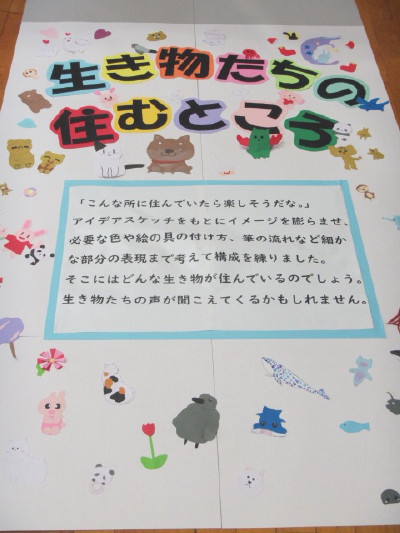 生き物たちの
住むところ
「こんな所に住んでいたら楽しそうだな。」
アイデアスケッチをもとにイメージを膨らませ、
必要な色や絵の具の付け方、筆の流れなど細か
な部分の表現まで考えて構成を練りました。
そこにはどんな生き物が住んでいるのでしょう。
生き物たちの声が聞こえてくるかもしれません。